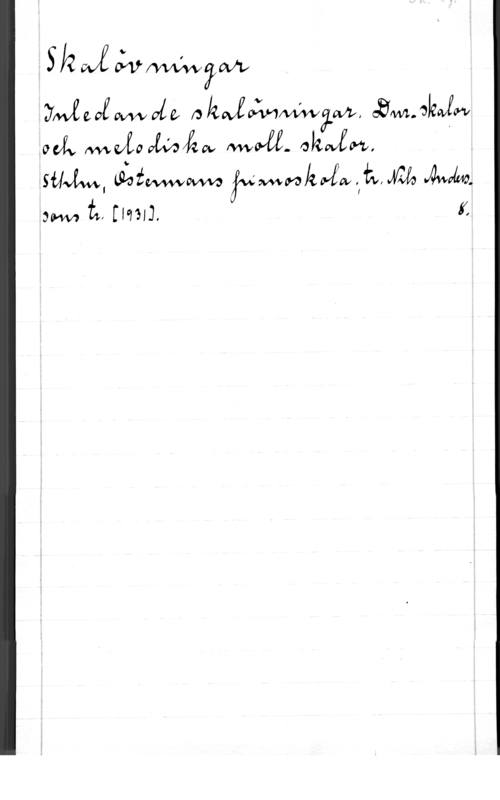 Skalövningar
Inledande skalövningar. Dur-skalor
och melodiska moll-skalor.
Sthlm, Östermans pianoskola; tr. Nils Anders-
sons tr. [1931]. 8.